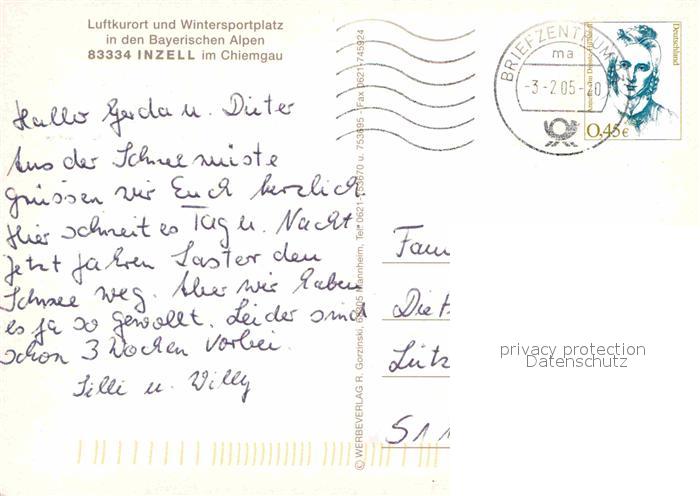 Luftkurort und Wintersportplatz
in den Bayerischen Alpen
83334 INZELL im Chiemgau
Hallo Gerda u. Dieter
Aus der Schneewüste
grüssen wir Euch herzlich.
Hier schneit es Tag u. Nacht.
Jetzt fahren Laster den
Schnee weg. Aber wir haben
es ja so gewollt. Leider sind
schon 3 Wochen vorbei.
Silli u. Willy
© WERBEVERLAG R. Gorzinski, Mannheim, Tel. 0621 u. 753695 - Fax 0621-745924
BRIEFZENTRUM
ma
-3-2.05-20
Deutschland
0,45€
Fam
Diet
Lütz
511
privacy protection
Datenschutz